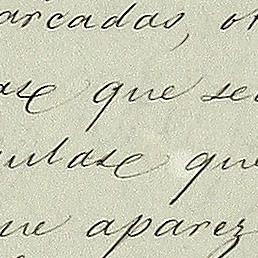 arcadas, ot
ase que se
ulase que
ue aparez